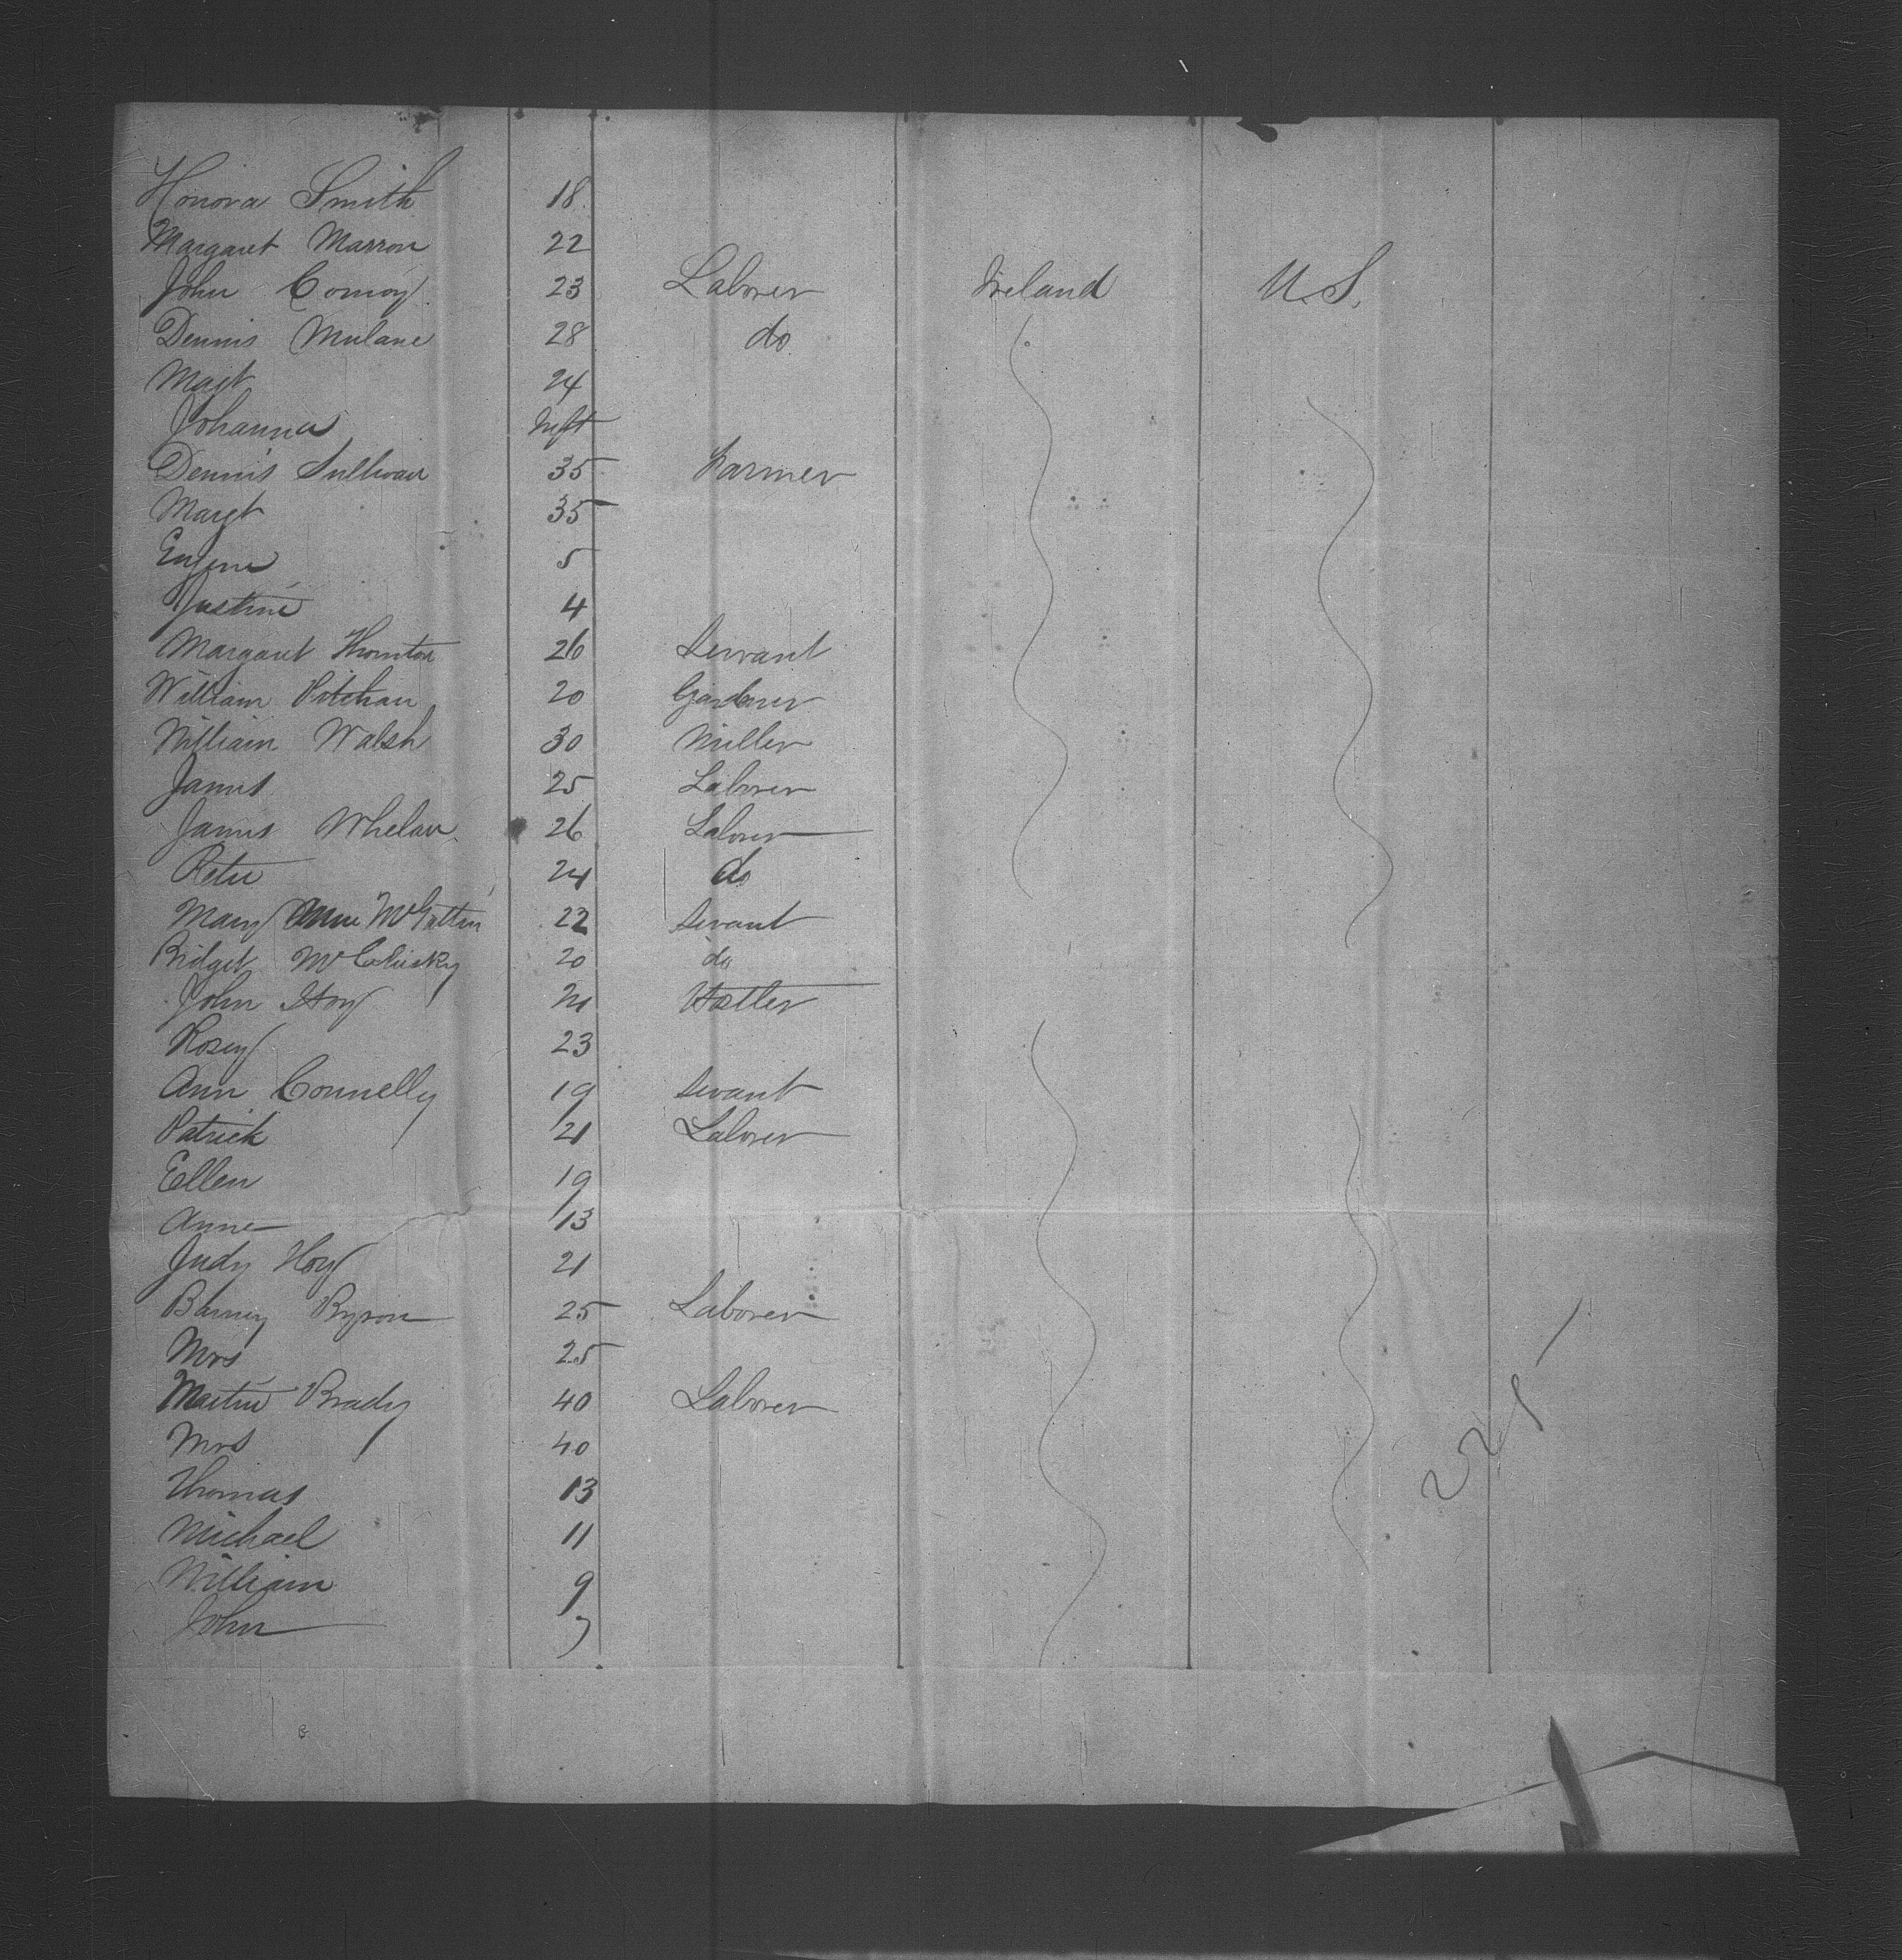 Honora Smith 18
Margaret Marron 22
John Conroy 23 Laborer Ireland U.S.
Dennis Mulane 28 do
Magt 24
Johanna Inft
Dennis Sullivan 35 Farmer
Margt 35
Eugene 5
Justine 4
Margaret Thornton 26 Servant
William 20 Gardner
William Walsh 30 Miller
James 25 Laborer
James Whelan 26 Laborer
Peter 24 do
Mary Anne 22 Servant
Bridget McClusky 20 do
John Hoy 21 Hostler
Rosey 23
Ann Connelly 19 Servant
Patrick 21 Laborer
Ellen 19
Anne 13
Judy Hoy 21
Barney Byron 25 Laborer
Mrs 25
Martin Brady 40 Laborer
Mrs 40
Thomas 13
Michael 11
William 9
John 7
221